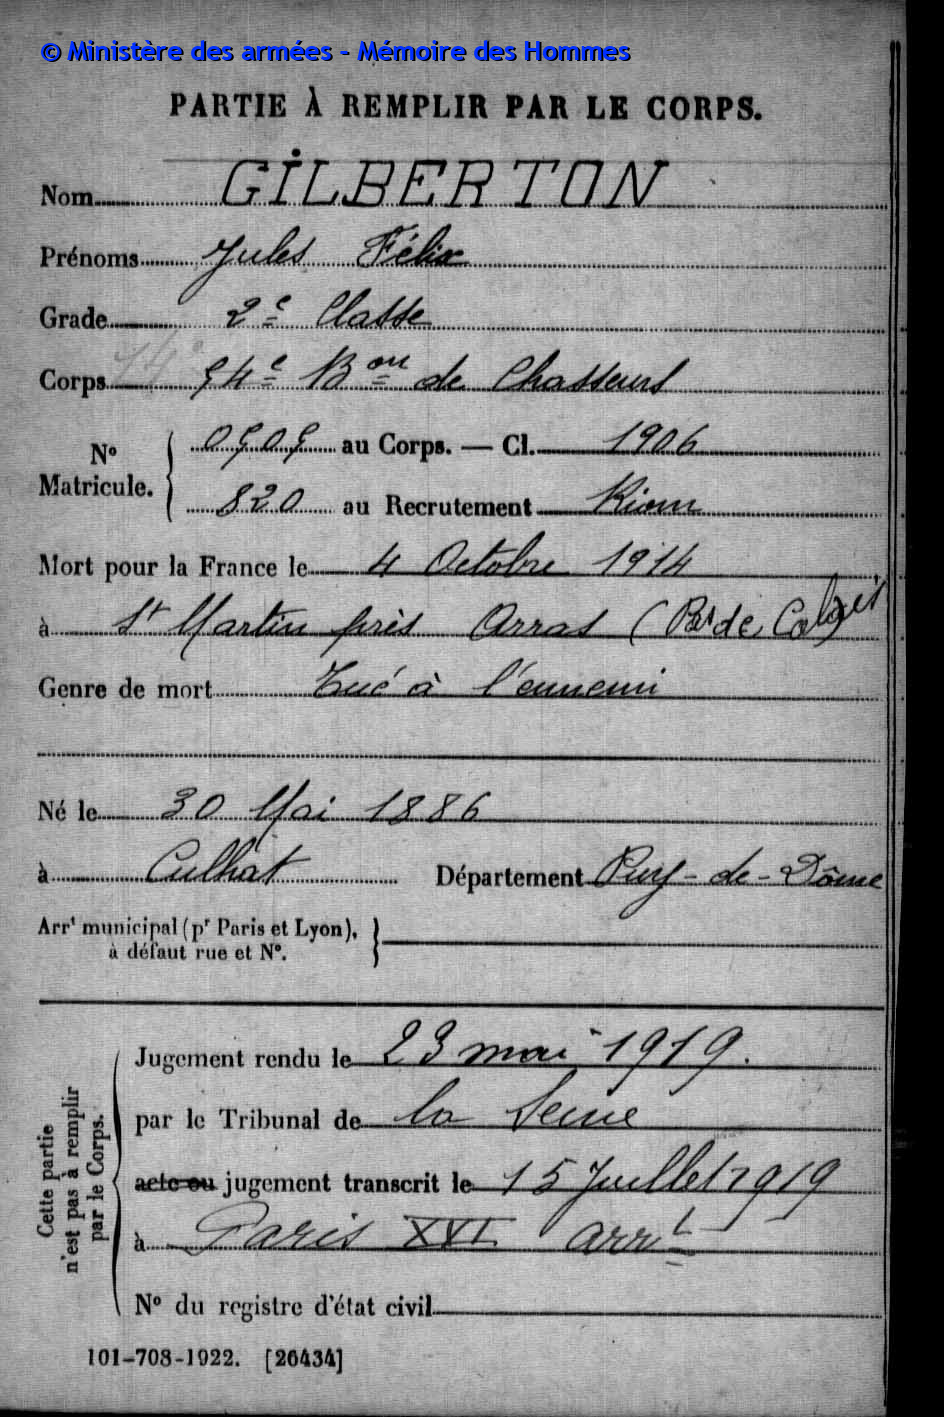 © Ministère des armées - Mémoire des Hommes
PARTIE À REMPLIR PAR LE CORPS.
Nom GILBERTON
Prénoms Jules Félix
Grade 2e Classe
Corps 54e Bon de Chasseurs
No Matricule. { 0505 au Corps. — Cl. 1906
820 au Recrutement Riom
Mort pour la France le 4 Octobre 1914
à St Martin près Arras (Pas de Calais)
Genre de mort Tué à l'ennemi
Né le 30 Mai 1886
à Culhat Département Puy-de-Dôme
Arrt municipal (pr Paris et Lyon),
à défaut rue et No. }
Cette partie
n'est pas à remplir
par le Corps.
Jugement rendu le 23 mai 1919.
par le Tribunal de la Seine
acte ou jugement transcrit le 15 Juillet 1919
à Paris XVI Arrt
No du registre d'état civil
101-708-1922. [26434]